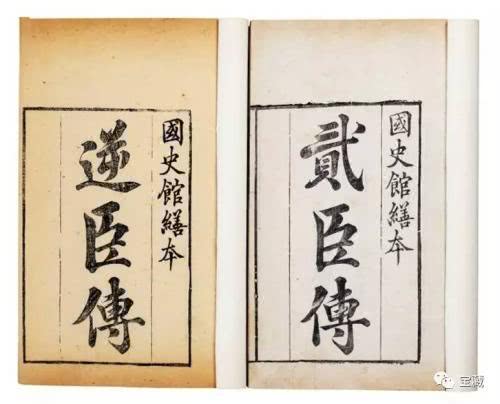 國史館繕本
貳臣傳
國史館繕本
逆臣傳
宝藏